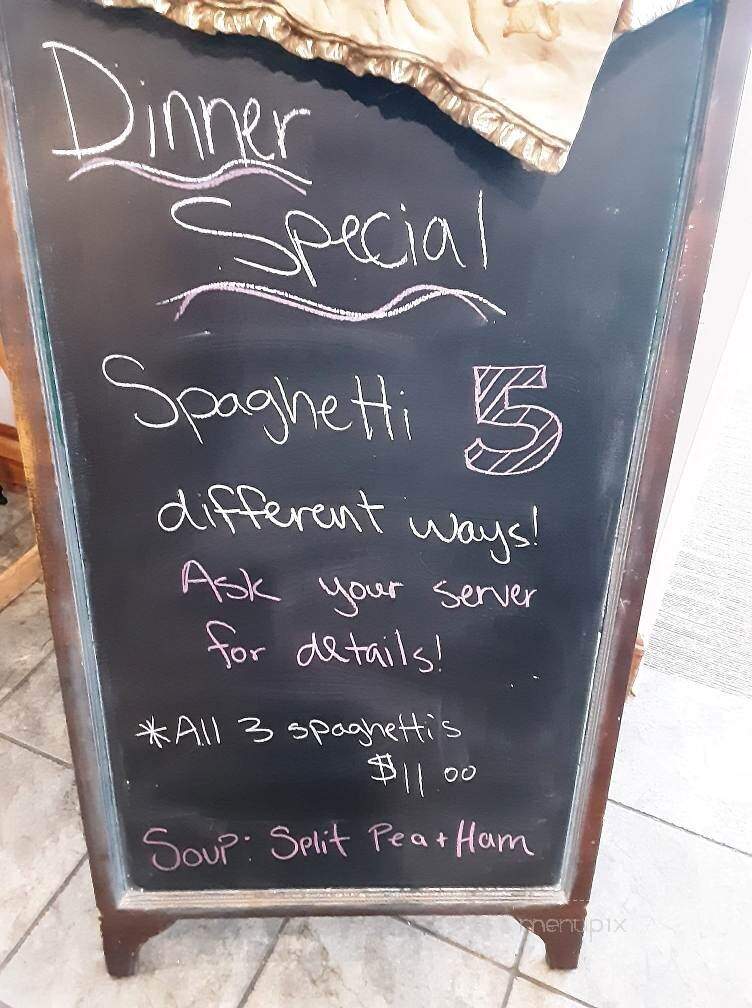 Dinner
Special
Spaghetti 5
different ways!
Ask your server
for details!
*All 3 spaghetti's
$11.00
Soup: Split Pea + Ham
menupix